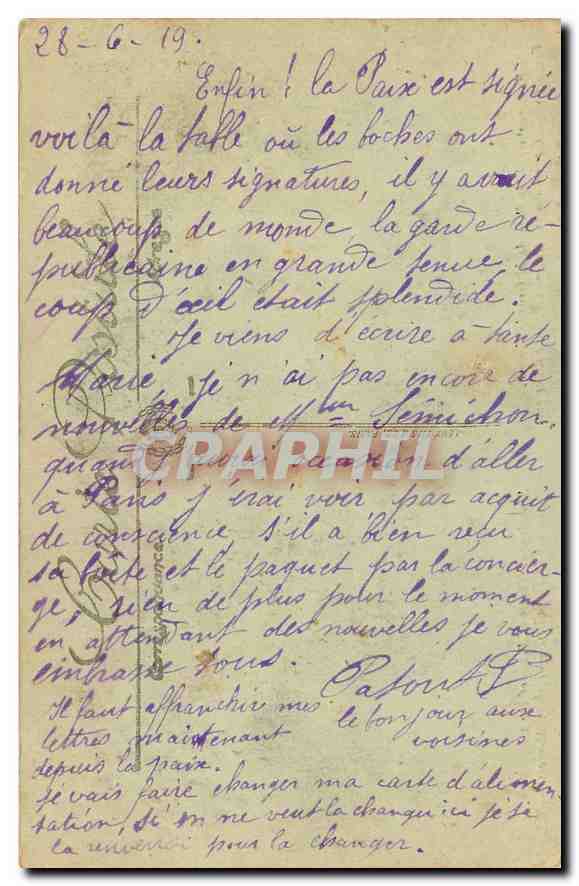 28-6-19.
Enfin! la Paix est signée
voilà la table où les boches ont
donné leurs signatures, il y avait
beaucoup de monde, la garde ré-
publicaine en grande tenue, le
coup d'œil était splendide.
Je viens d'écrire à tante
Marie, je n'ai pas encore de
nouvelles de Semichon,
quand occasion d'aller
à Paris j'irai voir par acquit
de conscience, s'il a bien reçu
sa boîte et le paquet par la concier-
ge, rien de plus pour le moment
en attendant des nouvelles je vous
embrasse tous.
le bonjour aux
voisines
Il faut affranchir mes
lettres maintenant
depuis la paix.
Je vais faire changer ma carte d'alimen-
tation, si on ne veut la changer ici je
la renverrai pour la changer.
Carte Postale
Correspondance
Adresse
CPAPHIL